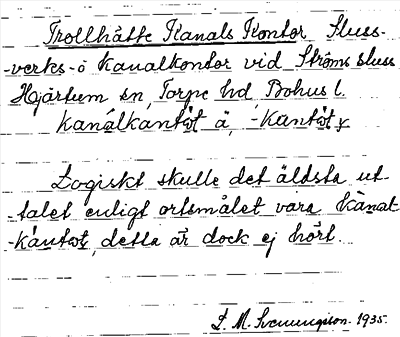 Trollhätte Kanals Kontor Sluss-
-verks-o kanalkontor vid Ströms sluss
Hjärtum sn, Torpe hd, Bohus l.
kanálkantøt ä, -kantøt y
Logiskt skulle det äldsta ut-
-talet enligt ortsmålet vara kànal-
-kántøt, detta är dock ej hört.
S. M. Svenungson. 1935.